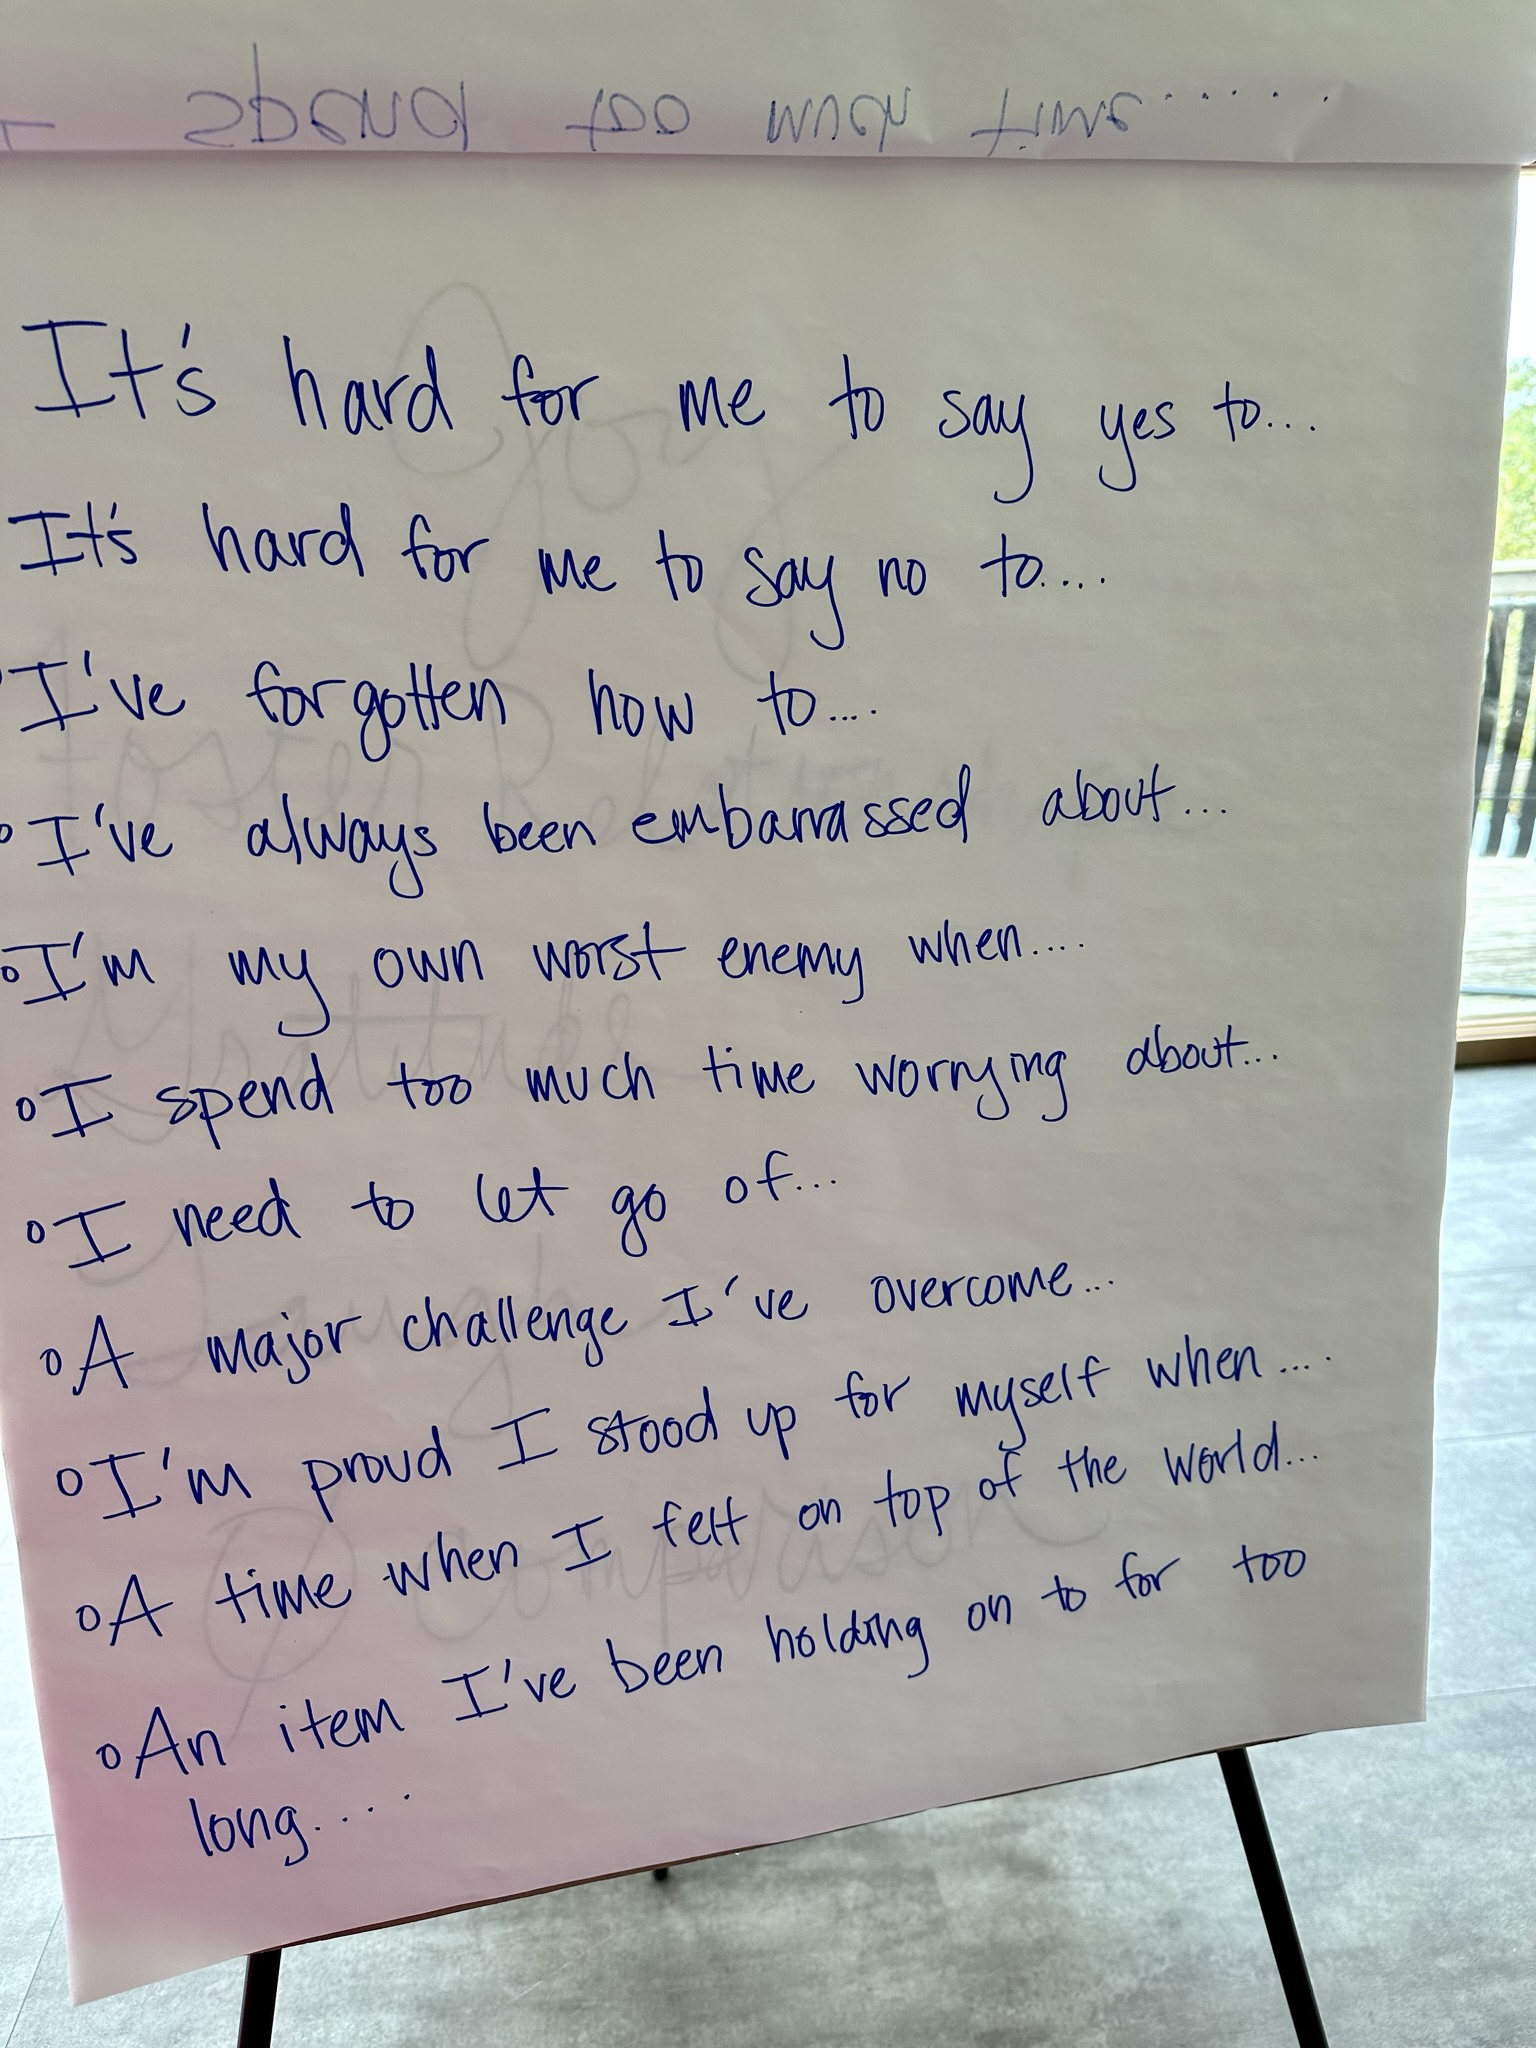 I spend too much time.....
It's hard for me to say yes to...
It's hard for me to say no to....
I've forgotten how to....
I've always been embarrassed about...
I'm my own worst enemy when....
I spend too much time worrying about...
I need to let go of...
A major challenge I've overcome...
I'm proud I stood up for myself when....
A time when I felt on top of the world...
An item I've been holding on to for too
long....
Joy
Foster
Gratitude
Laugh
Comparison